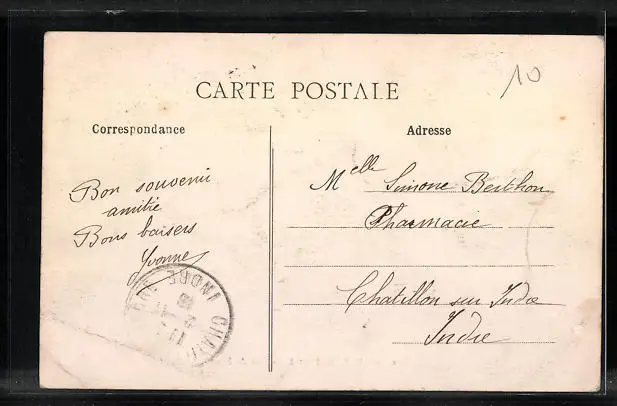 10
CARTE POSTALE
Correspondance
Adresse
Bon souvenir
amitié
Bons baisers
Yvonne
Melle Simone Berthon
Pharmacie
Chatillon sur Indre
Indre
INDRE